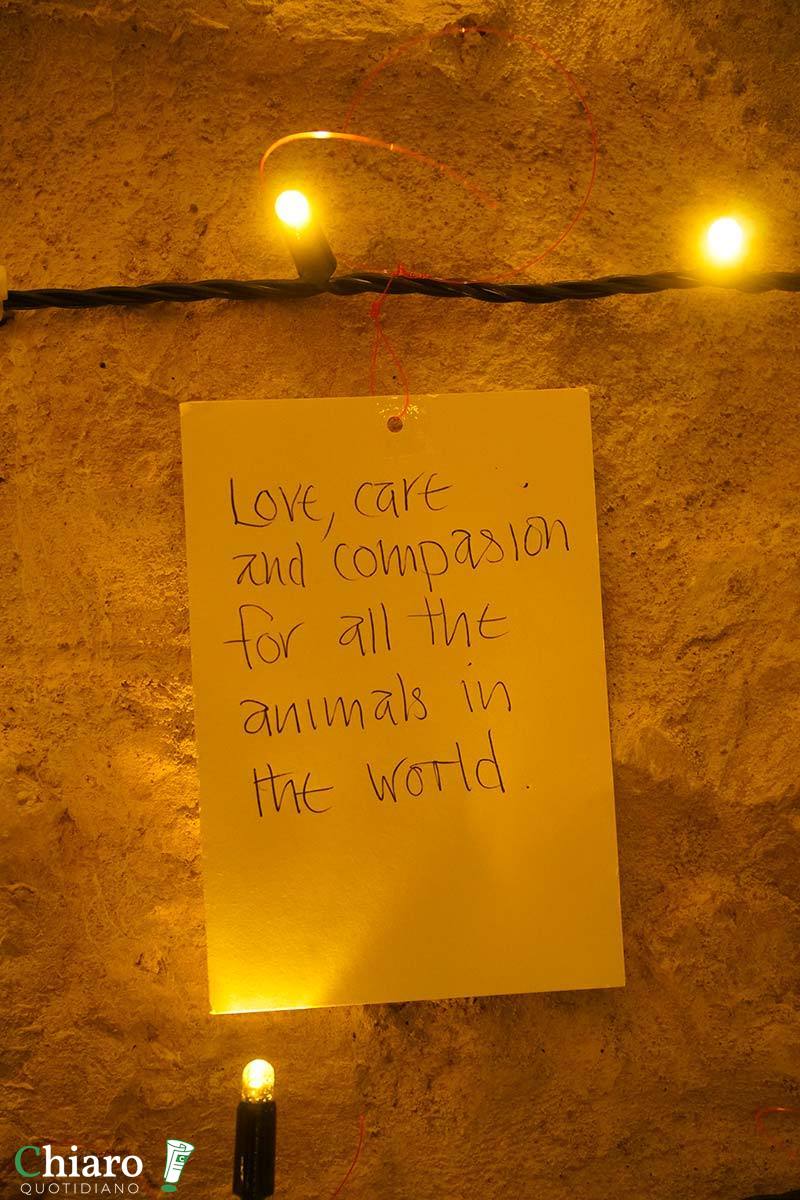 Love, care
and compasion
for all the
animals in
the world.
Chiaro
QUOTIDIANO